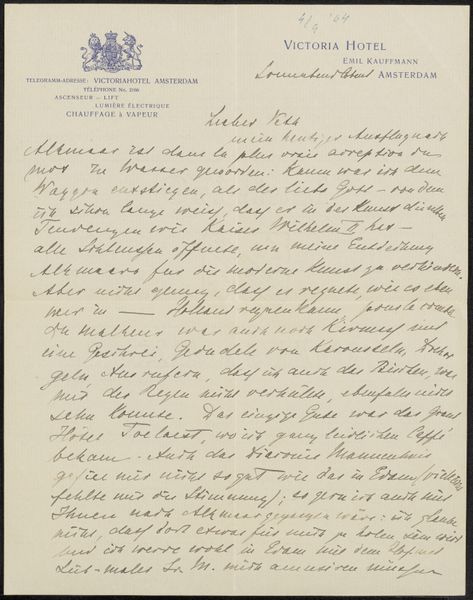 4/9 '04
VICTORIA HOTEL
EMIL KAUFFMANN
AMSTERDAM
TELEGRAMM-ADRESSE: VICTORIAHOTEL AMSTERDAM
TÉLÉPHONE No.
ASCENSEUR – LIFT
LUMIÈRE ÉLECTRIQUE
CHAUFFAGE à VAPEUR
Sonnabend Abend
Lieber Veth
mein heutiger Ausflug nach
Alkmaar ist dans la plus vraie acception du
mot zu Wasser geworden: Kaum war ich dem
Waggon entstiegen, als der liebe Gott – von dem
ich schon lange weiss, dass er in der Kunst dieselben
Tendenzen wie Kaiser Wilhelm II hat –
alle Schleussen öffnete, um meine Entdeckung
Alkmaars für die moderne Kunst zu verhindern.
Aber nicht genug, dass es regnete, wie es eben
nur in — Holland regnen kann, pour le comble
du malheur war auch noch Kirmess und
ein Geschrei, Gedudel von Karousseln,
Ausrufern, dass ich auch das Bischen, was
mir der Regen nicht verhüllte, ebenfalls nicht
sehn konnte. Das einzige Gute war das
Hôtel Toelast, wo ich ganz leidlichen Caffé
bekam. Auch das Mannenhuis
gefiel mir nicht so gut wie das in Edam (vielleicht
fehlte mir die Stimmung); so gern ich auch mit
Ihnen nach Alkmaar gegangen wäre: ich glaube
nicht, dass dort etwas für mich zu holen sein wird
und ich werde wohl in Edam mit dem
M. mich amusiren müssen